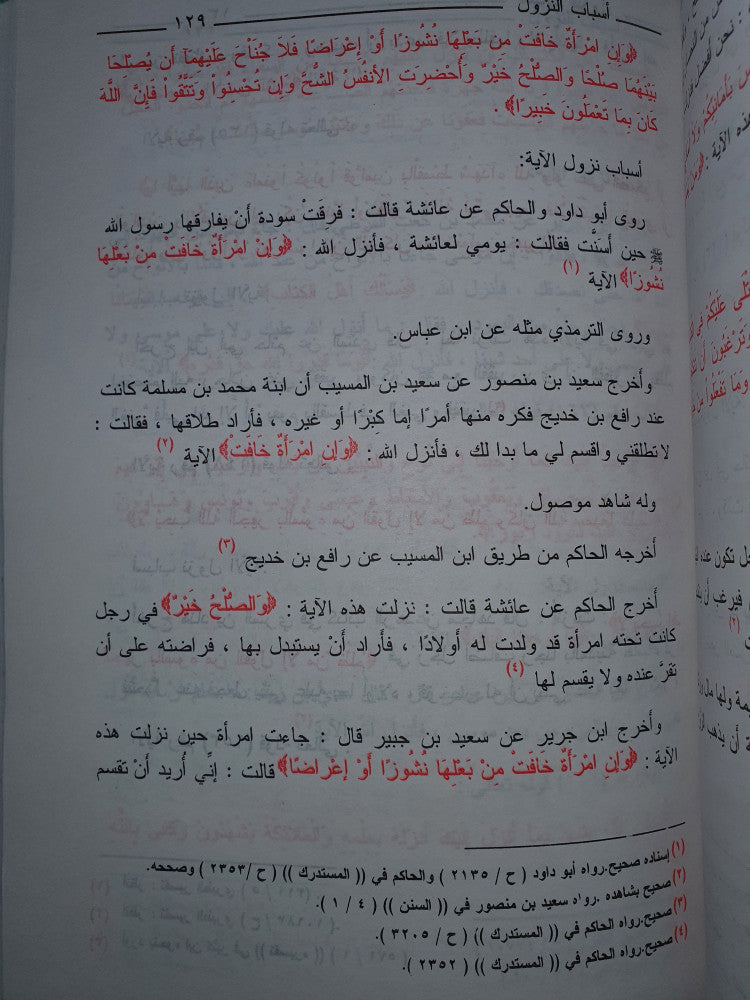 أسباب النزول ١٢٩
﴿وَإِنِ امْرَأَةٌ خَافَتْ مِن بَعْلِهَا نُشُوزًا أَوْ إِعْرَاضًا فَلَا جُنَاْحَ عَلَيْهِمَآ أَن يُصْلِحَا
بَيْنَهُمَا صُلْحًا وَالصُّلْحُ خَيْرٌ وَأُحْضِرَتِ الأَنفُسُ الشُّحَّ وَإِن تُحْسِنُواْ وَتَتَّقُواْ فَإِنَّ اللَّهَ
كَانَ بِمَا تَعْمَلُونَ خَبِيرًا﴾ .
أسباب نزول الآية:
روى أبو داود والحاكم عن عائشة قالت : فرِقَتْ سودة أنْ يفارقها رسول الله
ﷺ حين أسَنَّت فقالت : يومي لعائشة ، فأنزل الله : ﴿وَإِنْ امْرَأَةٌ خافتْ مِنْ بَعْلِهَا
نُشُوزًا﴾ الآية (١)
وروى الترمذي مثله عن ابن عباس.
وأخرج سعيد بن منصور عن سعيد بن المسيب أن ابنة محمد بن مسلمة كانت
عند رافع بن خديج فكره منها أمرًا إما كِبْرًا أو غيره ، فأراد طلاقها ، فقالت :
لاتطلقني واقسم لي ما بدا لك ، فأنزل الله : ﴿وَإِنِ امْرَأَةٌ خَافَتْ﴾ الآية (٢)
وله شاهد موصول.
أخرجه الحاكم من طريق ابن المسيب عن رافع بن خديج (٣)
أخرج الحاكم عن عائشة قالت : نزلت هذه الآية : ﴿وَالصُّلْحُ خَيْرٌ﴾ في رجل
كانت تحته امرأة قد ولدت له أولادًا ، فأراد أنْ يستبدل بها ، فراضته على أن
تقرَّ عنده ولا يقسم لها (٤)
وأخرج ابن جرير عن سعيد بن جبير قال : جاءت امرأة حين نزلت هذه
الآية : ﴿وَإِنِ امْرَأَةٌ خَافَتْ مِنْ بَعْلِهَا نُشُوزًا أَوْ إعْرَاضًا﴾ قالت : إنِّي أُريد أنْ تقسم
(١) إسناده صحيح.رواه أبو داود ( ح / ٢١٣٥ ) والحاكم في (( المستدرك )) ( ح/ ٢٣٥٣ ) وصححه.
(٢) صحيح بشاهده .رواه سعيد بن منصور في (( السنن )) ( ٤ / ١ ).
(٣) صحيح.رواه الحاكم في (( المستدرك )) ( ح / ٣٢٠٥ ).
(٤) صحيح.رواه الحاكم في (( المستدرك )) ( ٢٣٥٢ ).